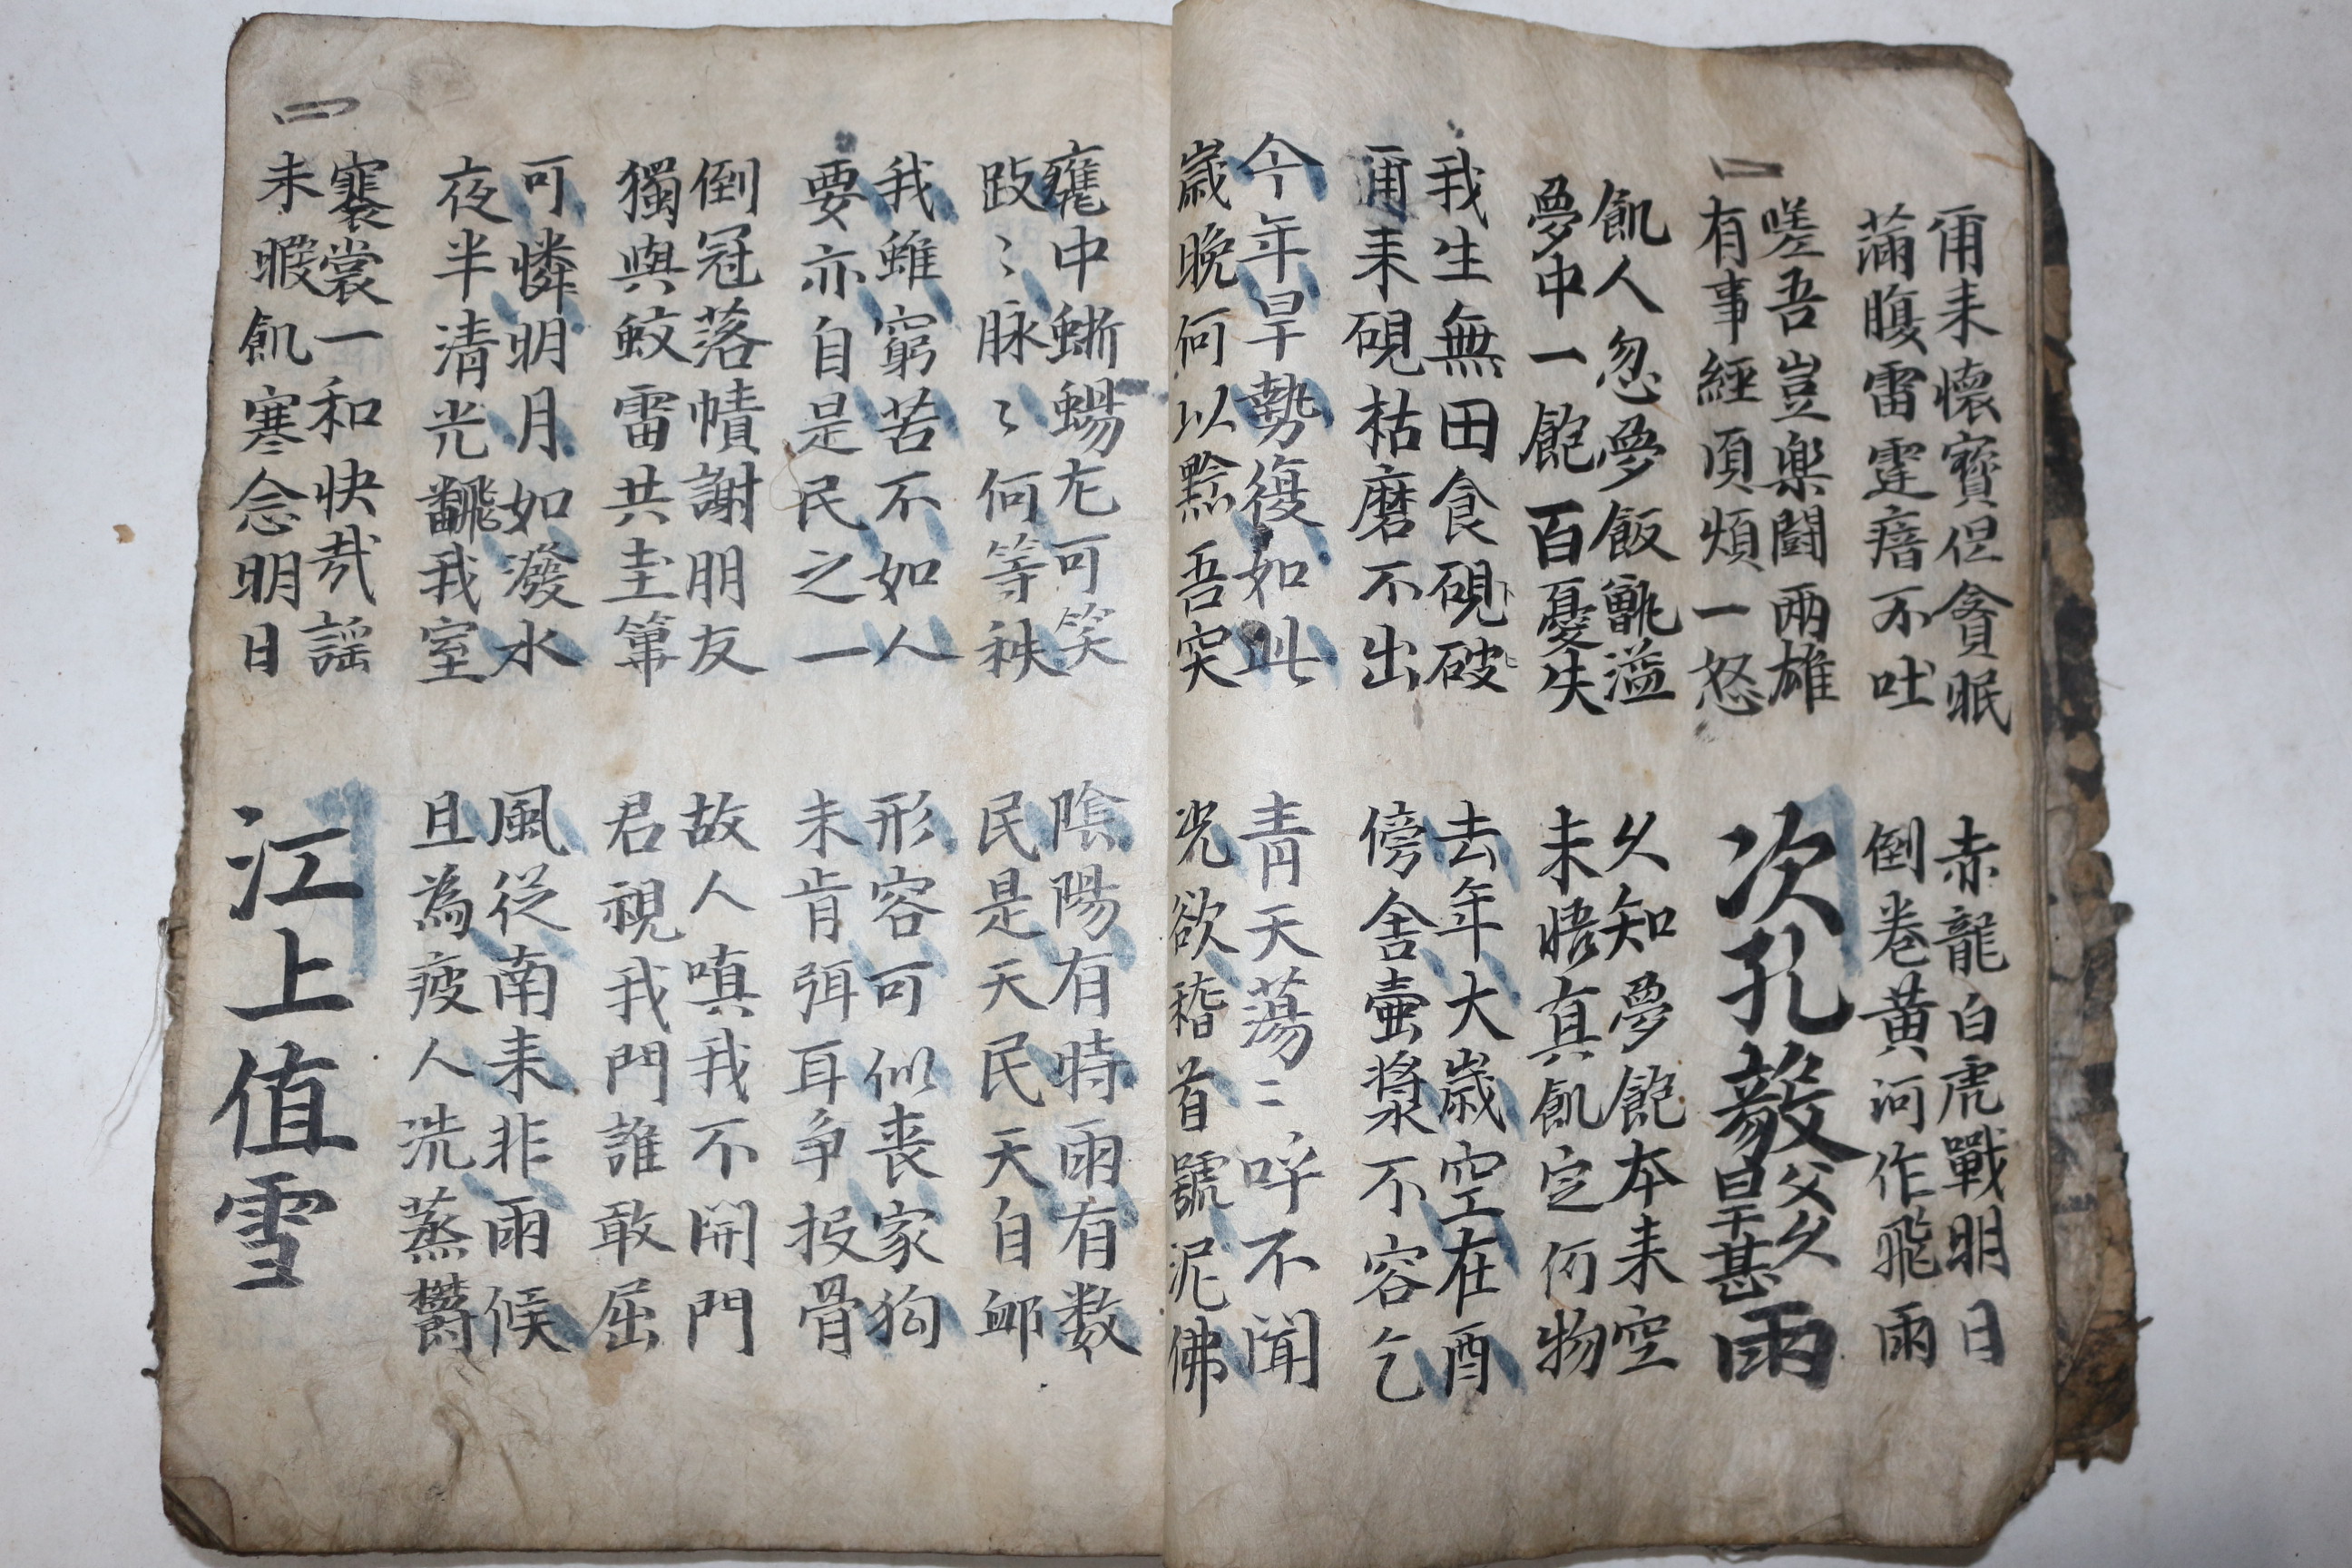 爾来懷寶但貪眠
滿腹雷霆瘖不吐
赤龍白虎戰明日
倒卷黄河作飛雨
嗟吾豈楽鬪兩雄
有事經須煩一怒
次孔毅父久旱甚雨
飢人忽夢飯甑溢
夢中一飽百憂失
久知夢飽本来空
未悟真飢定何物
我生無田食硯破
爾来硯枯磨不出
去年大歲空在酉
傍舍壷漿不容乞
今年旱勢復如此
歲晚何以黔吾突
青天蕩〻呼不聞
况欲稽首號泥佛
甕中蜥蜴尤可笑
跂〻脉〻何等秩
陰陽有時雨有数
民是天民天自卹
我雖窮苦不如人
要亦自是民之一
形容可似喪家狗
未肯弭耳争投骨
倒冠落幘謝朋友
獨與蚊雷共圭篳
故人嗔我不開門
君視我門誰敢屈
可憐明月如潑水
夜半清光飜我室
風從南来非雨候
且為疲人洗蒸欝
褰裳一和快哉謡
未暇飢寒念明日
江上值雪